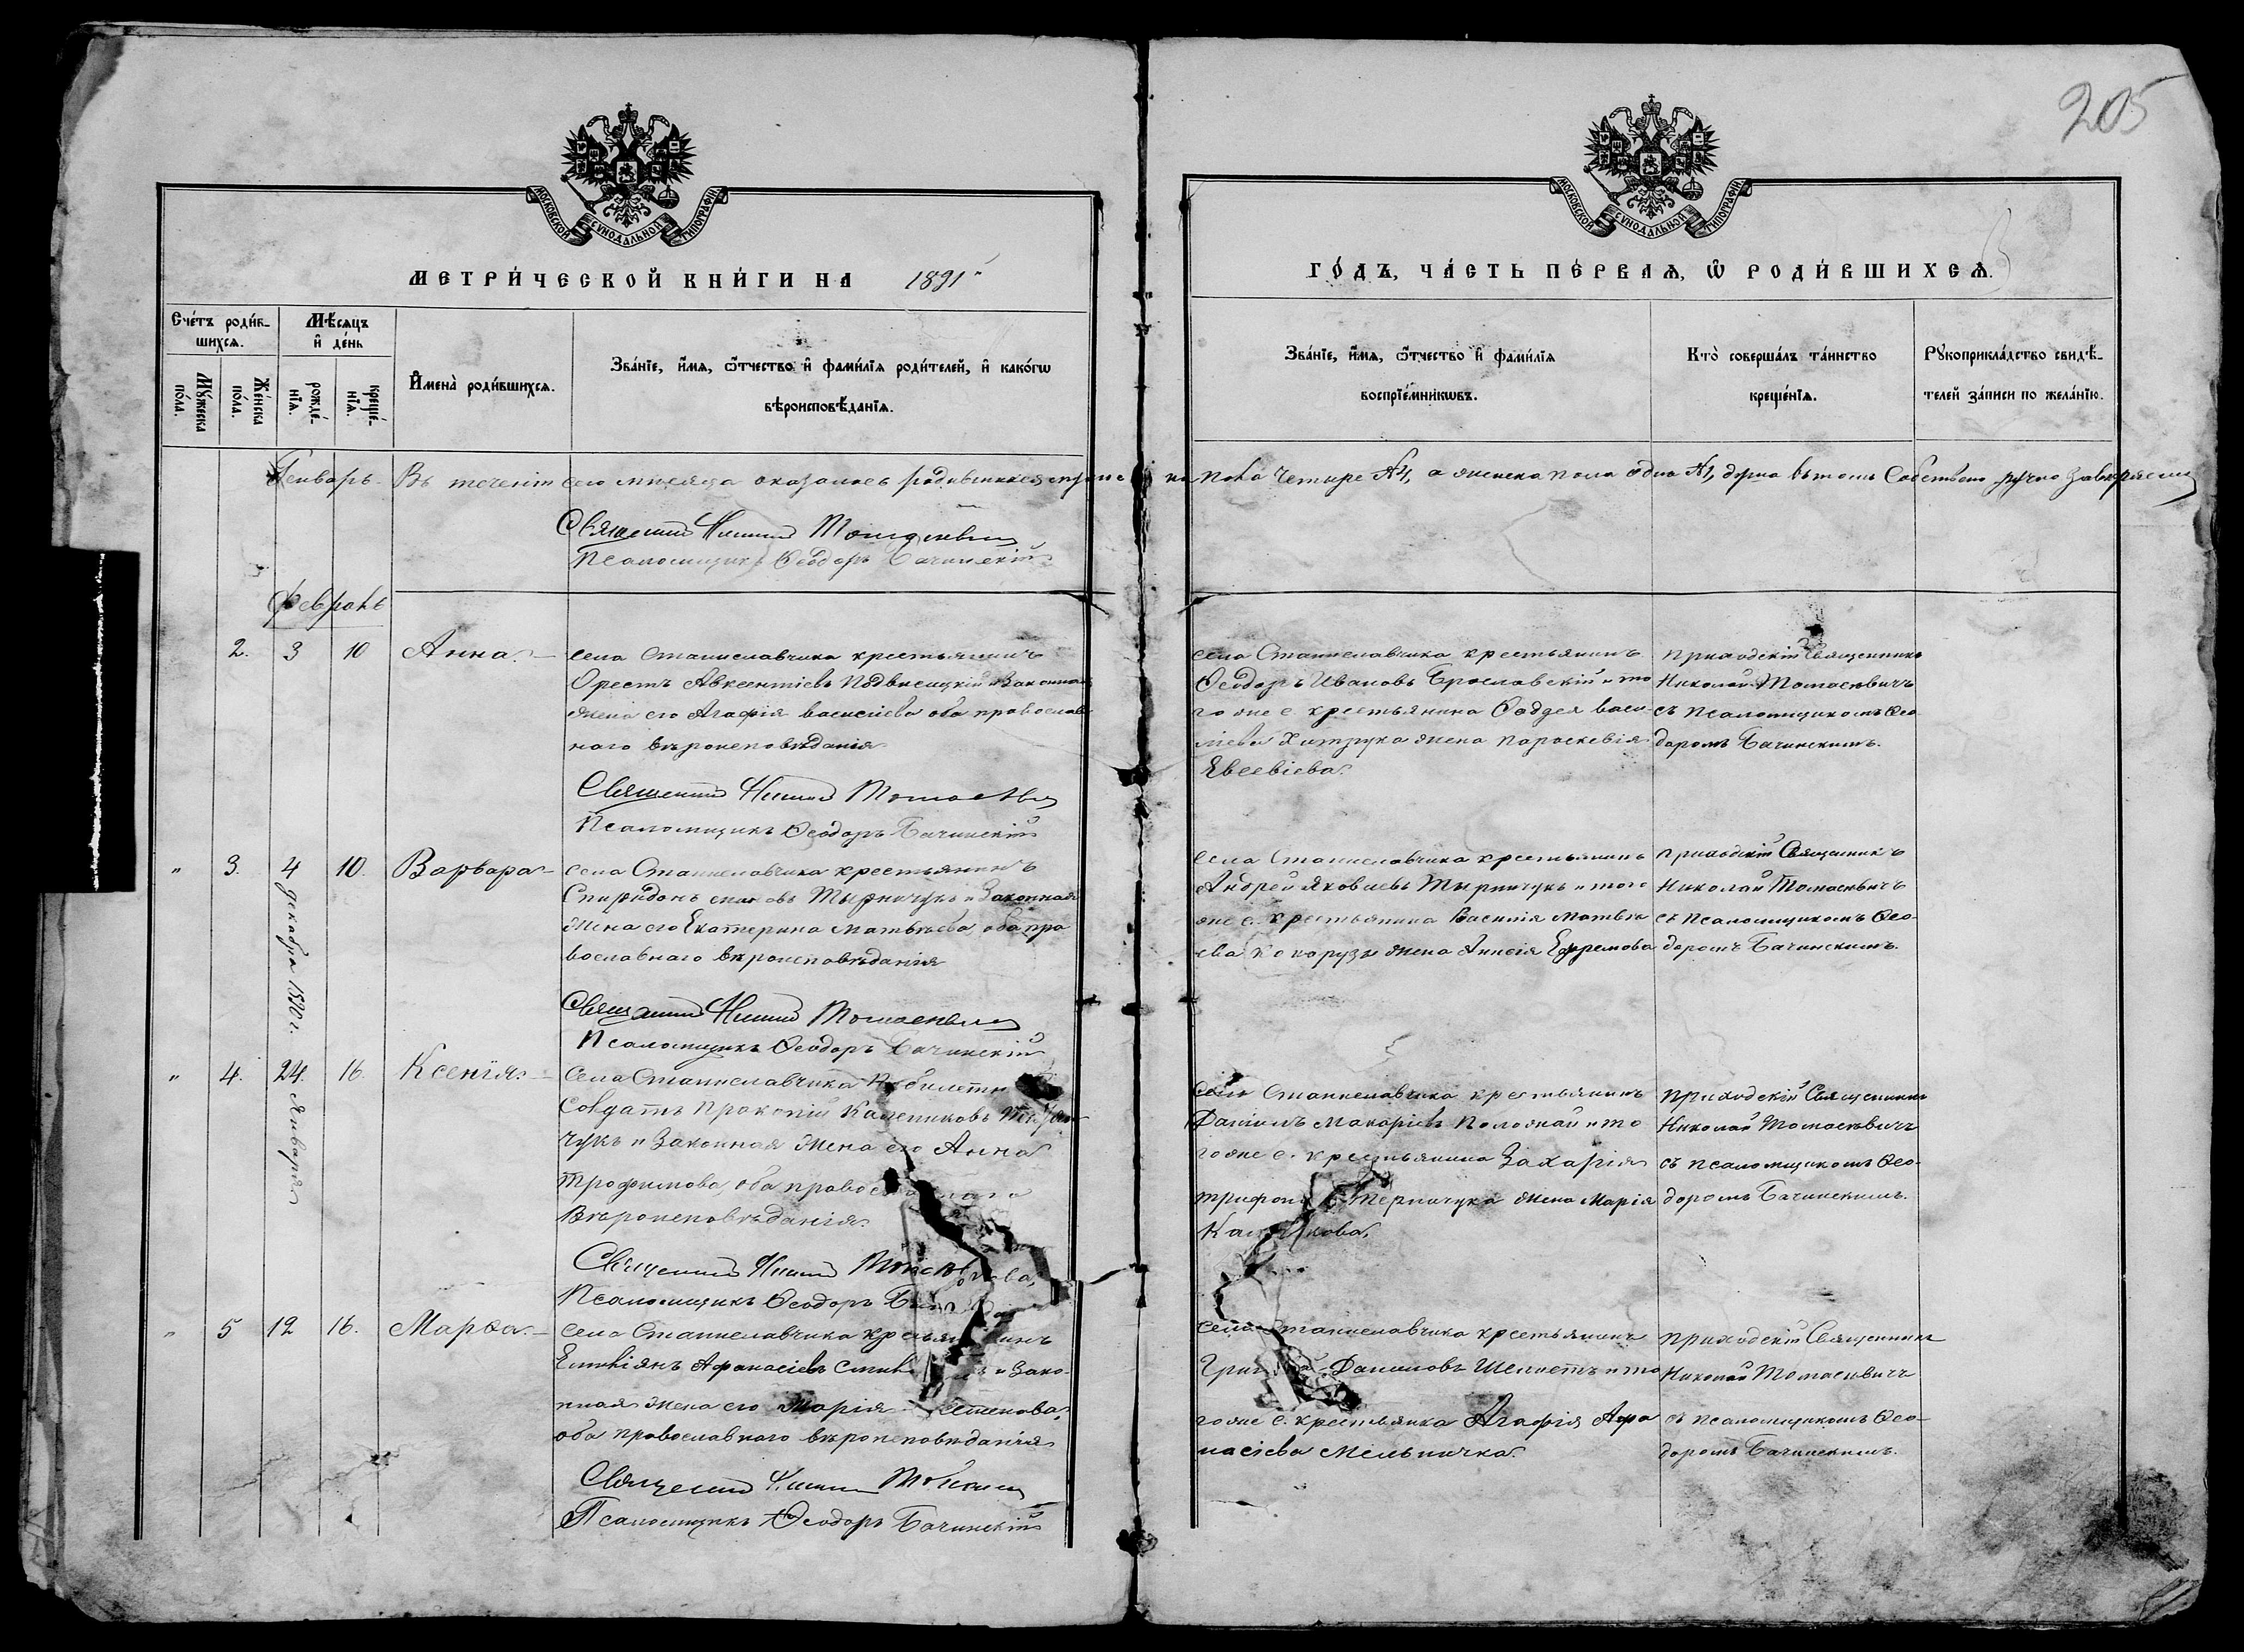 205
МОСКОВСКОЙ СѴНОДАЛЬНОЙ ТИПОГРАФІИ.
МОСКОВСКОЙ СѴНОДАЛЬНОЙ ТИПОГРАФІИ.
МЕТРИ́ЧЕСКОЙ КНИ́ГИ НА 1891
ГО́ДЪ, ЧА́СТЬ ПЕ́РВАѦ, Ѡ РОДИ́ВШИХСѦ.
Сче́тъ роди́в-
шихсѧ.
Мѣ́сѧцъ
и҆ де́нь
Мꙋ́жеска
по́ла.
Же́нска
по́ла.
рожде́-
нїѧ.
креще́-
нїѧ.
И҆мена̀ роди́вшихсѧ.
Зва́нїе, и҆́мѧ, ѻ҆́тчество и҆ фами́лїѧ роди́телей, и҆ како́гѡ
вѣроисповѣ́данїѧ.
Зва́нїе, и҆́мѧ, ѻ҆́тчество и҆ фами́лїѧ
воспрїе́мникѡвъ.
Кто̀ соверша́лъ та́инство
креще́нїѧ.
Рꙋкоприкла́дство свидѣ́-
телей за́писи по жела́нїю.
Генварь Въ теченіи сего мѣсяца оказалось родившихся пола четыре №4, а женска пола одна №1,
Священникъ Томасевичъ
Псаломщикъ Ѳеодоръ Бачинскій
Февраль
2. 3 10 Анна.
села Станиславчика крестьянинъ
Орестъ Авксентіевъ Подвысицкій и законная
жена его Агафія Василіева оба православ
наго вѣроисповѣданія
Священникъ Томасевичъ
Псаломщикъ Ѳеодоръ Бачинскій
села Станиславчика крестьянинъ
Ѳеодоръ Ивановъ Брославскій и то
го же с. крестьянина Фаддея Васи-
ліева Хитрука жена Параскевія
Евсевіева.
приходскій Священникъ
Николай Томасевичъ
съ псаломщикомъ Ѳео
доромъ Бачинскимъ.
" 3. 4 декабря 1890 г. 10. Варвара
села Станиславчика крестьянинъ
Спиридонъ Тырничукъ и законная
жена его Екатерина Матвѣева, оба пра
вославнаго вѣроисповѣданія
Священникъ Томасевичъ
Псаломщикъ Ѳеодоръ Бачинскій
села Станиславчика крестьянинъ
Андрей Яковлевъ Тырничукъ и того
же с. крестьянина Василія Матвѣ
ева Кокарузы жена Анисія Ефремова
приходскій Священникъ
Николай Томасевичъ
съ псаломщикомъ Ѳео-
доромъ Бачинскимъ.
" 4. 24. Января 16. Ксенія.
села Станиславчика
солдатъ Прокопій Калениковъ
чукъ и законная жена его Анна
Трофимова, оба
вѣроисповѣданія.
Священникъ
Псаломщикъ Ѳеодоръ
села Станиславчика крестьянинъ
Даніилъ Макаріевъ Положай и то
го же с. крестьянина Захарія
Терничука жена Марія
приходскій Священникъ
Николай Томасевичъ
съ псаломщикомъ Ѳео-
доромъ Бачинскимъ.
" 5 12 16. Марѳа.
села Станиславчика
Емиліянъ Афанасіевъ и зако-
нная жена его Марія
оба православнаго вѣроисповѣданія
Священникъ
Псаломщикъ Ѳеодоръ Бачинскій
села Станиславчика крестьянинъ
Даниловъ Шелистъ и то
го же с. крестьянка Агафія Афа
насіева Мельничка.
приходскій Священникъ
Николай Томасевичъ
съ псаломщикомъ Ѳео-
доромъ Бачинскимъ.